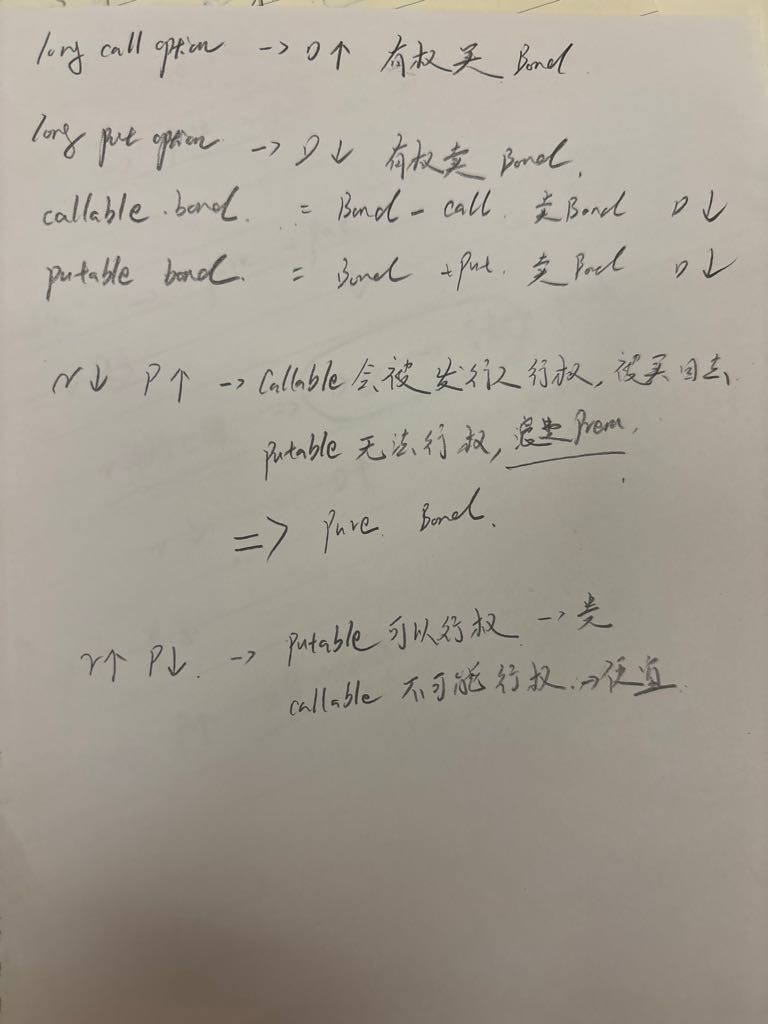 long call option -> D↑ 有权买 Bond.
long put option -> D↓ 有权卖 Bond.
callable bond. = Bond - call. 卖Bond D↓
putable bond. = Bond + Put. 卖Bond D↓
r↓ P↑ -> Callable 会被发行人行权, 被买回去,
putable 无法行权, Prem.
=> Pure Bond.
r↑ P↓. -> putable 可以行权 -> 贵
callable 不可能行权.->便宜